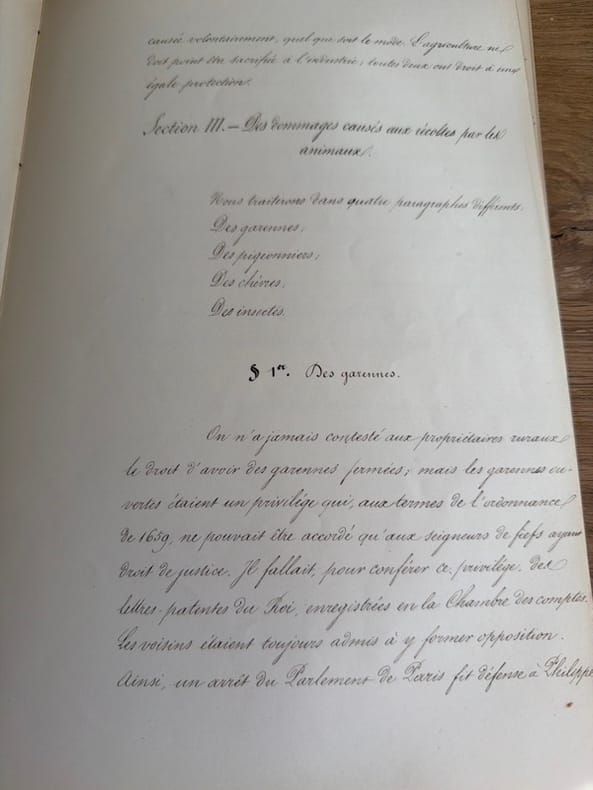 causée volontairement, quel que soit le mode. L'agriculture ne
doit point être sacrifiée à l'industrie; toutes deux ont droit à une
égale protection.
Section III. — Des dommages causés aux récoltes par les
animaux.
Nous traiterons dans quatre paragraphes différents.
Des garennes,
Des pigeonniers,
Des chèvres,
Des insectes.
§ 1er. Des garennes.
On n'a jamais contesté aux propriétaires ruraux
le droit d'avoir des garennes fermées; mais les garennes ou-
vertes étaient un privilége qui, aux termes de l'ordonnance
de 1659, ne pouvait être accordé qu'aux seigneurs de fiefs ayant
droit de justice. Il fallait, pour conférer ce privilége, des
lettres-patentes du Roi, enregistrées en la Chambre des comptes.
Les voisins étaient toujours admis à y former opposition.
Ainsi, un arrêt du Parlement de Paris fit défense à Philippe